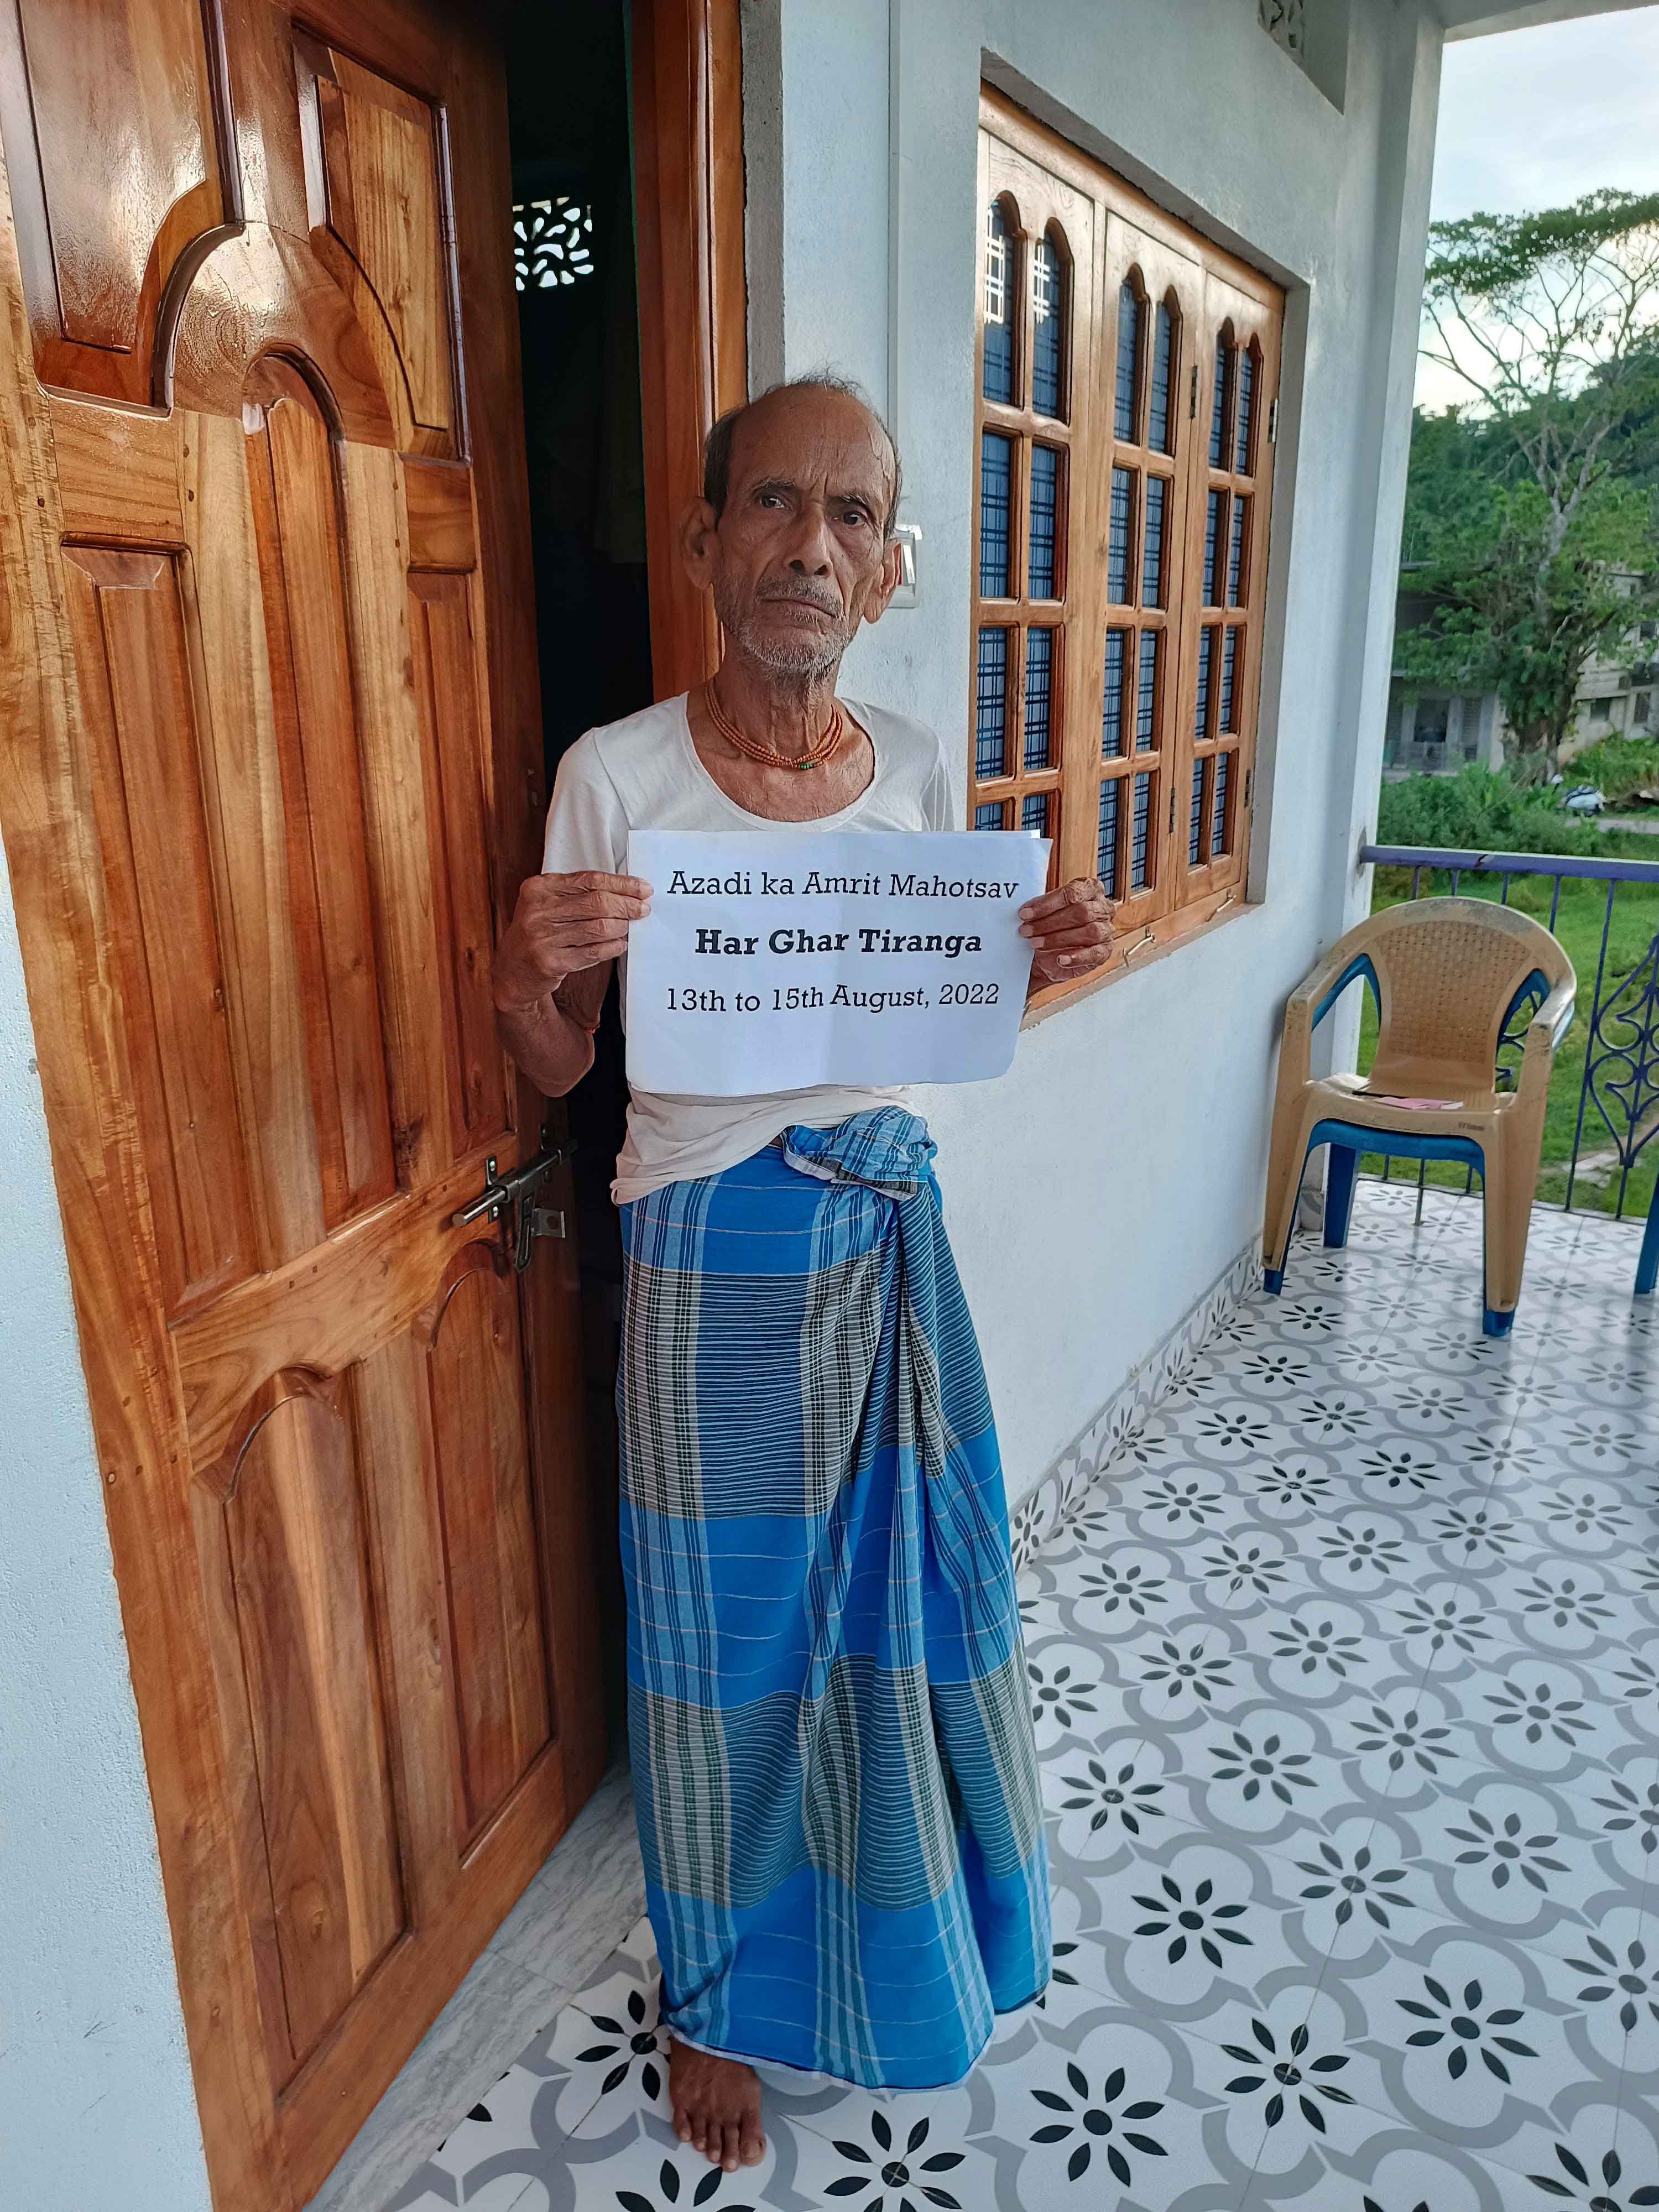 Azadi ka Amrit Mahotsav
Har Ghar Tiranga
13th to 15th August, 2022